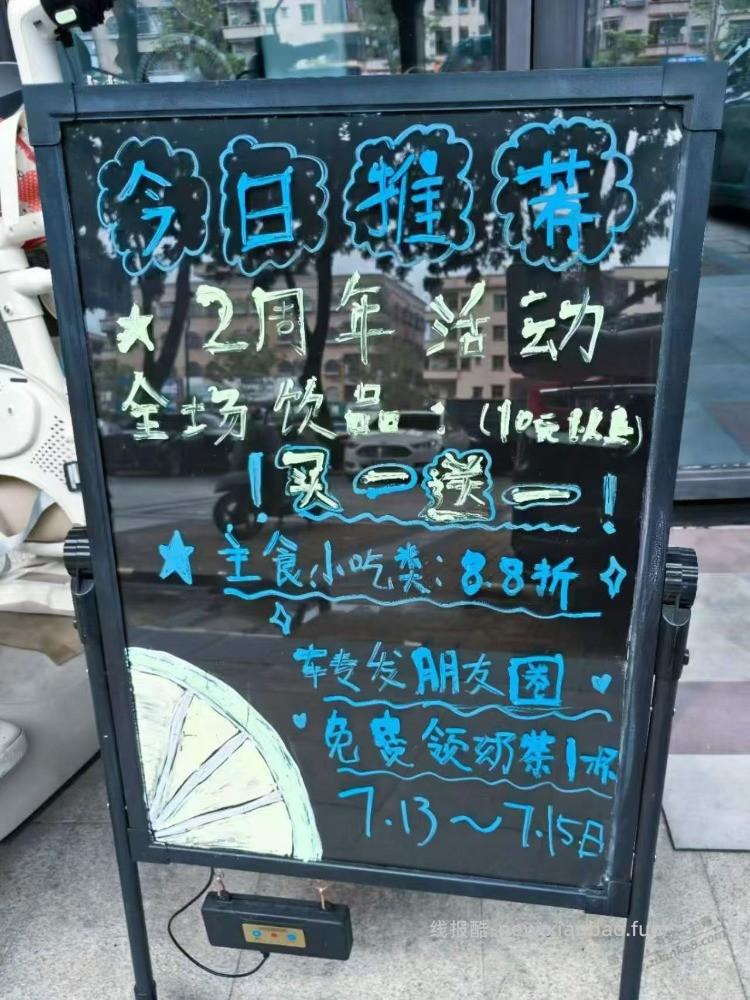 今日推荐
★2周年活动
全场饮品：(10元以上)
！买一送一！
★主食小吃类：8.8折
转发朋友圈
免费领奶茶1杯
7.13～7.15日
线报酷